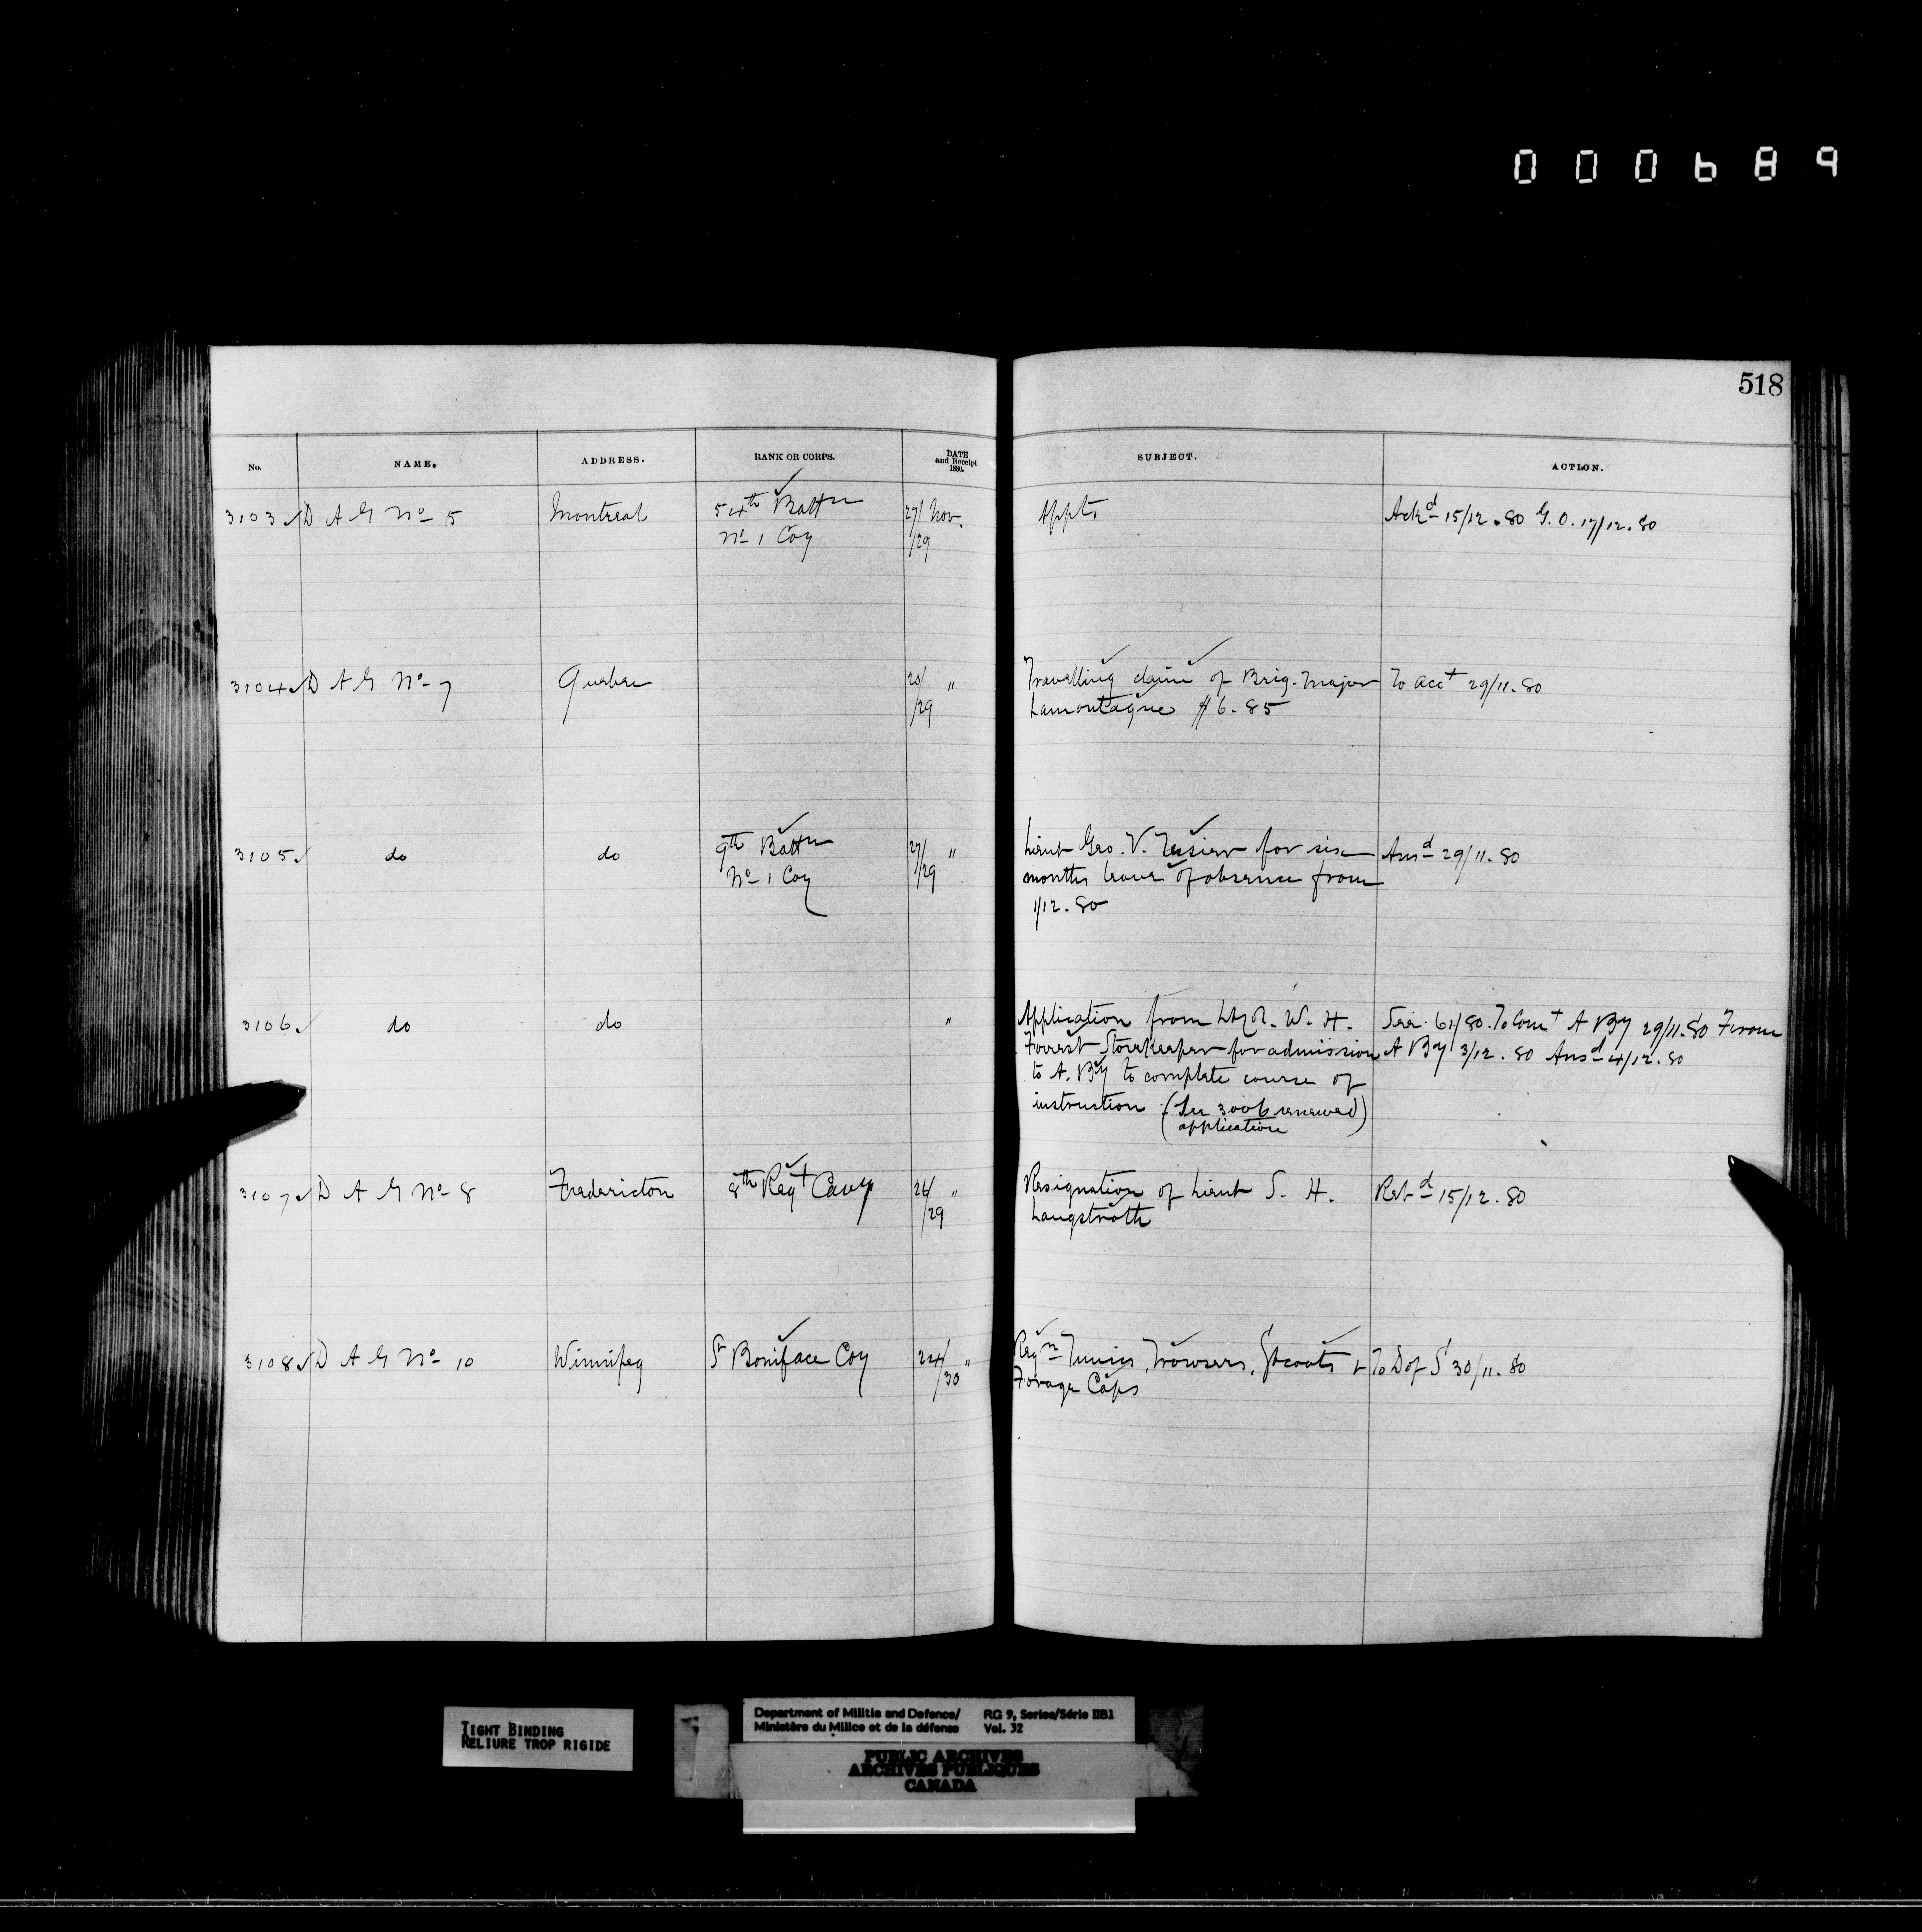 000689
518
No. NAME. ADDRESS. RANK OR CORPS. DATE and Receipt 1880. SUBJECT. ACTION.
3103 D A G No 5 Montreal 54th Battn 27/ Nov. Appts Ackd 15/12.80 G.O. 17/12.80
No 1 Coy /29
3104 D A G No 7 Quebec " Travelling claim of Brig. Major To acct 29/11.80
/29 Lamontagne $6.85
3105 do do 9th Battn 27/ " Lieut Geo. V. Tessier for six Ansd 29/11.80
No 1 Coy /29 months leave of absence from
1/12.80
3106 do do " Application from W. H. To Comt A By 29/11.80 From
Forrest Storekeeper for admission A By 3/12.80 Ansd 4/12.80
to A. By to complete course of
instruction (See 3006 renewed)
application
3107 D A G No 8 Fredericton 8th Regt Cavy 26/ " Resignation of Lieut S. H. Retd 15/12.80
/29 Langstroth
3108 D A G No 10 Winnipeg St Boniface Coy 24/ " Reqn Tunics, Trowsers, Gtcoats & To D of S 30/11.80
/30 Forage Caps
TIGHT BINDING
RELIURE TROP RIGIDE
Department of Militia and Defence/ RG 9, Series/Série IIB1
Ministère du Milice et de la défense Vol. 32
PUBLIC ARCHIVES
ARCHIVES PUBLIQUES
CANADA